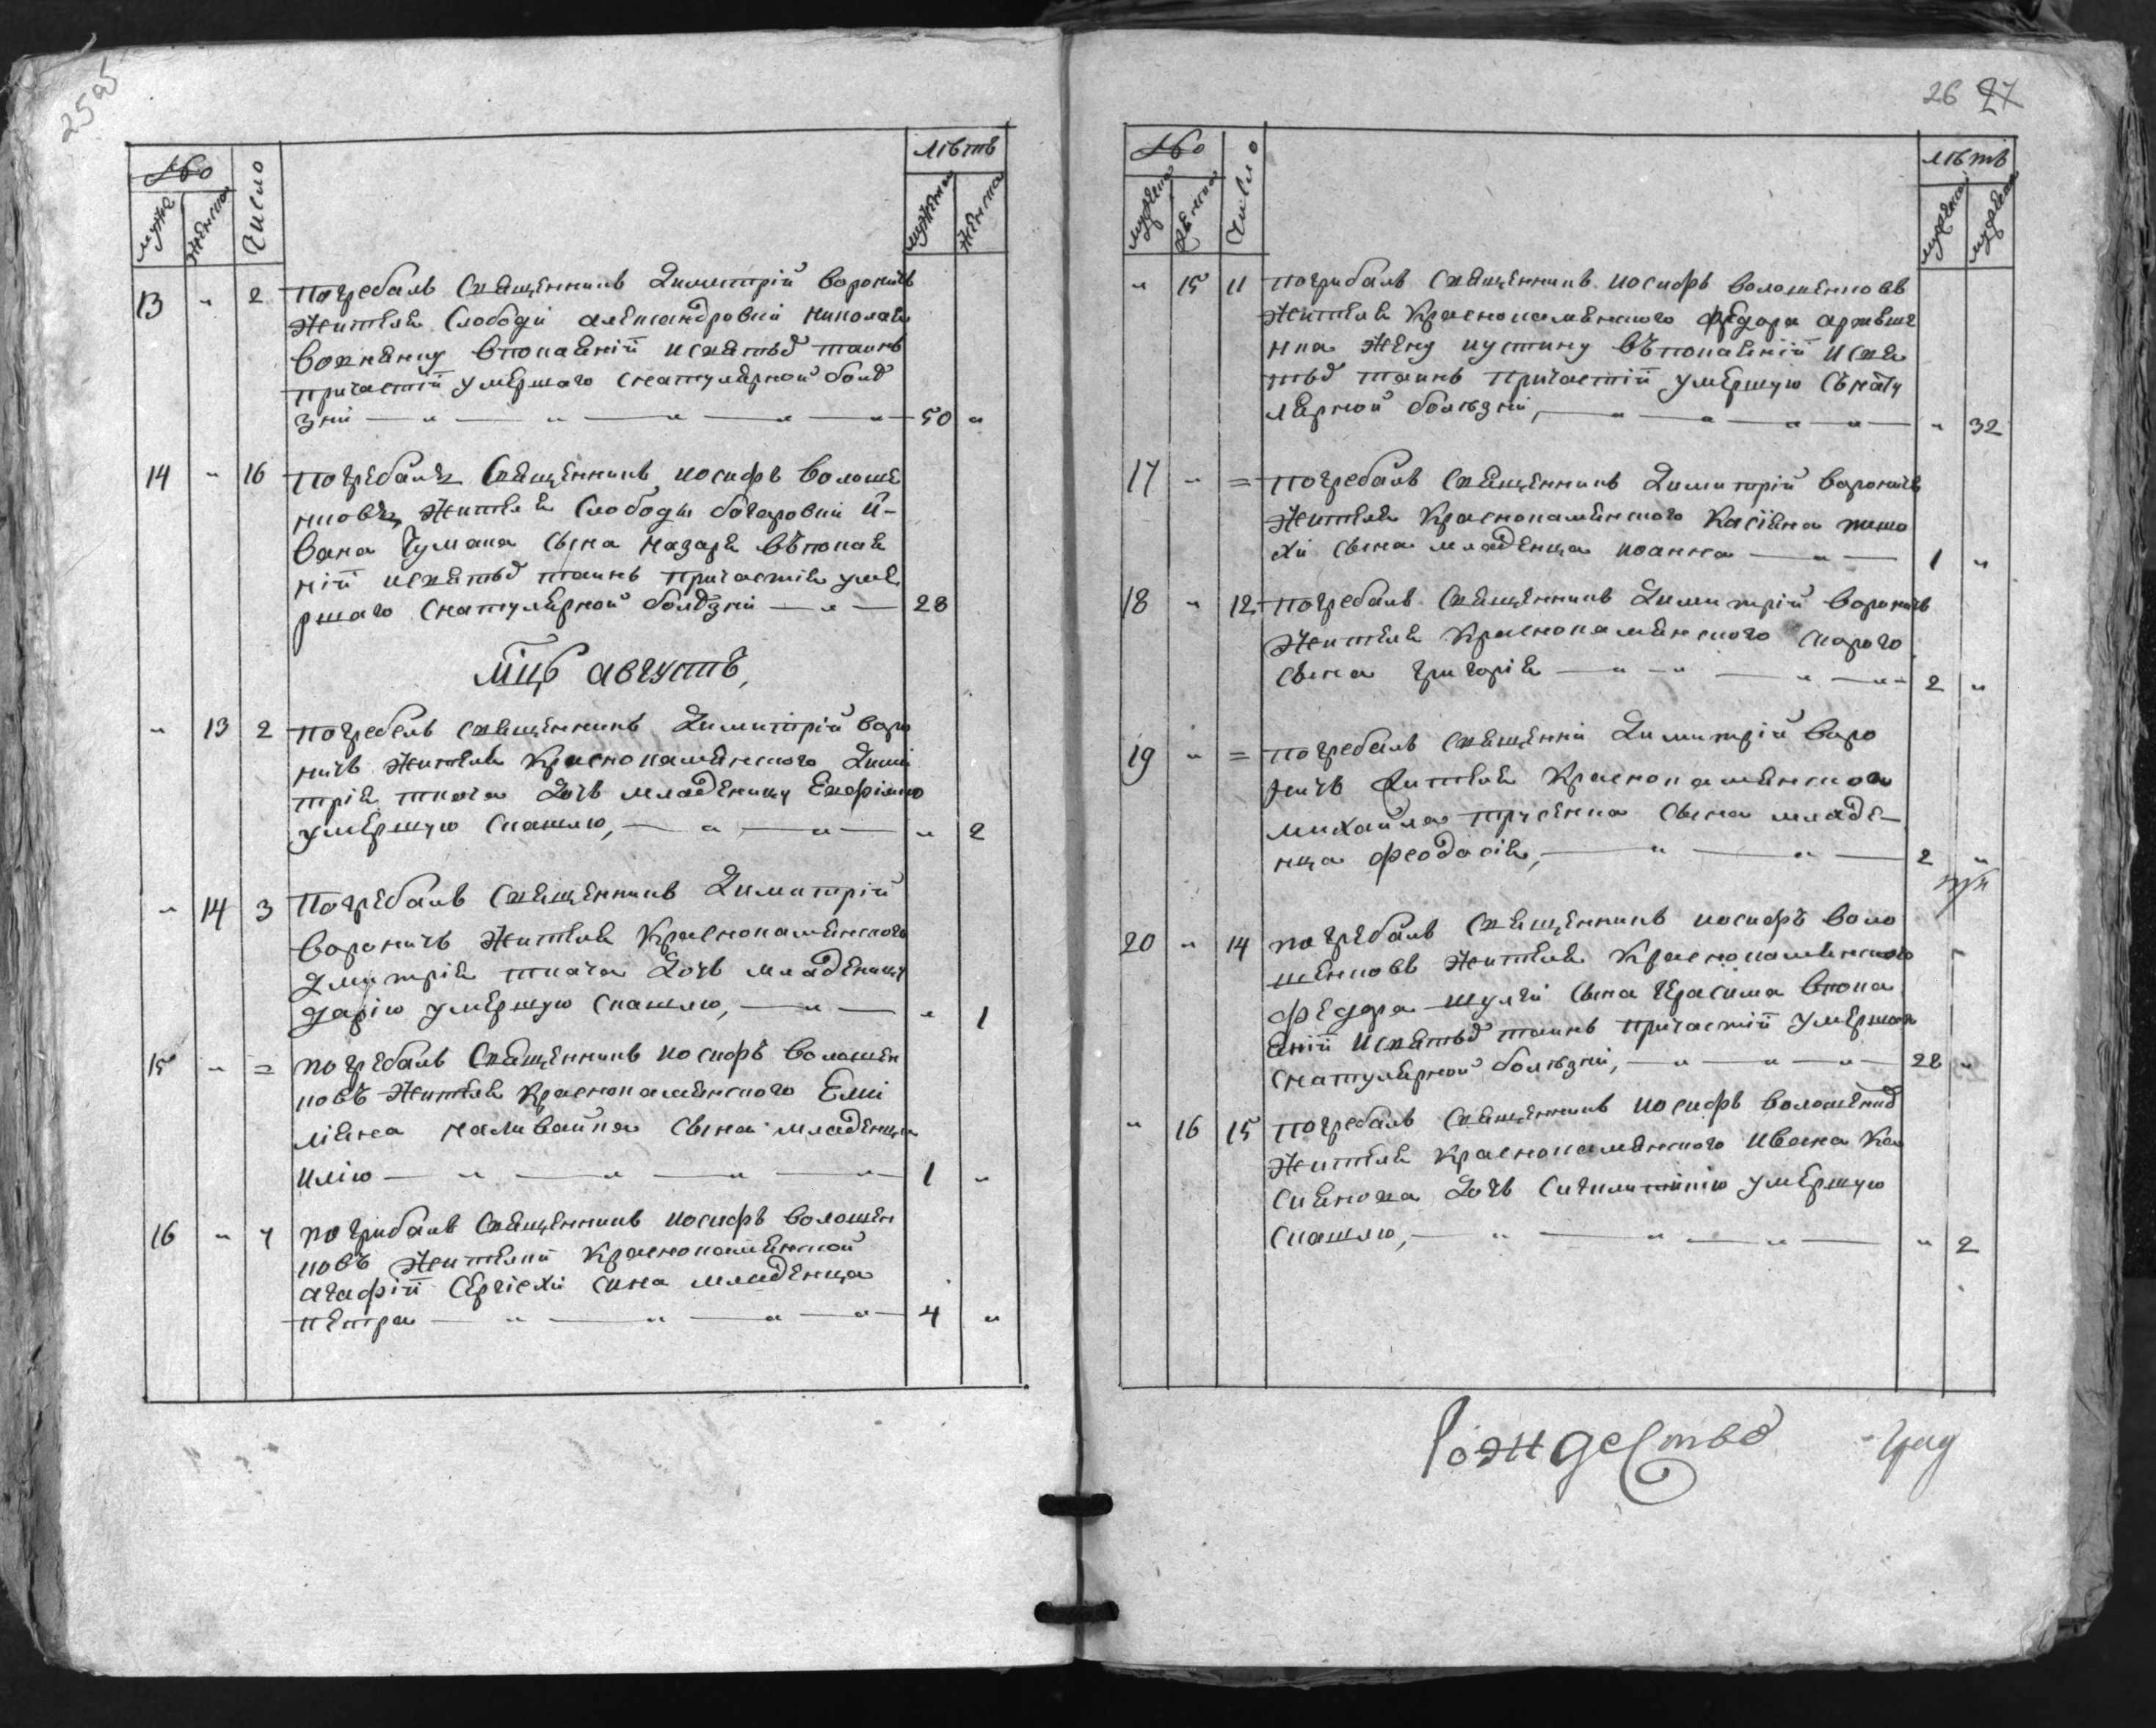 25об
№
Число
лѣтъ
мужеска
женска
мужеска
женска
13 " 2 погребалъ Священникъ Димитрій вороничъ
жителя Слободи александровки николая
впокаянїи исвятыхъ таинъ
причастїи умершаго снатуларной болѣ
зни — " — " — " — " — 50 "
14 " 16 погребалъ Священникъ иосифъ волоше
нковъ жителя Слободы бочаровки и-
вана чумака сына назара въпокая
нїи исвятыхъ таинъ причастїя уме
ршаго снатуларной болѣзни — " — 28
мцъ августъ,
" 13 2 погребалъ священникъ Димитрій воро
ничъ жителя Краснокаменского Дими
трїя ткача Дочь младеницу Евфимїю
умершую скашлю, — " — " — " 2
" 14 3 погребалъ священникъ Димитрій
вороничъ жителя Краснокаменского
Димитрїя ткача Дочь младеницу
дарїю умершую скашлю, — " — " 1
15 " = погребалъ Священникъ иосифъ волошен
ковъ жителя Краснокаменского Еми
лїяна наливайка сына младенца
илїю — " — " — " — " — 1 "
16 " 7 погребалъ Священникъ иосифъ волошен
ковъ жителки Краснокаменской
агафїи Сергїехи сина младенца
петра — " — " — " — " — 4 "
26 27
№
Число
лѣтъ
мужеска
женска
мужеска
" 15 11 погребалъ Священникъ иосифъ волошенковъ
жителя Краснокаменского федора
жену иустину въпокаянїи исвя
тыхъ таинъ причастїи умершую сънату
ларной болѣзни, — " — " — " — " 32
17 " = погребалъ Священникъ Димитрій вороничъ
жителя Краснокаменского Касїяна тимо
хи сына младенца иоанна — " — 1 "
18 " 12 погребалъ Священникъ Димитрій вороничъ
жителя Краснокаменского
сына григорїя — " — " — " — " 2 "
19 " = погребалъ священни Димитрїй воро
ничъ жителя Краснокаменского
михайла сына младе-
нца феодосїя, — " — " — 2 "
20 " 14 погребалъ Священникъ иосифъ воло
шенковъ жителя Краснокаменского
федора шулги сына герасима впока
янїи исвятыхъ таинъ причастїи умершаго
снатуларной болѣзни, — " — " — " — 28 "
" 16 15 погребалъ Священникъ иосифъ волошенко
жителя Краснокаменского ивана Ка
сиянова Дочь умершую
скашлю, — " — " — " — " 2
Рождество